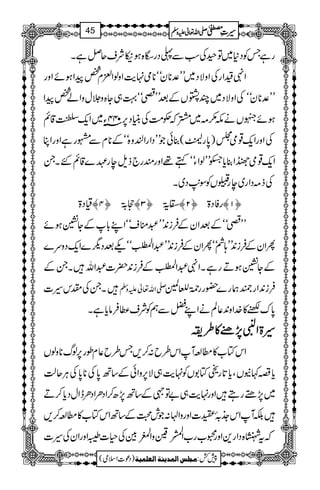 سیرتِ مصطفی صلی اللہ تعالیٰ علیہ وسلم
45
رہے جس کو دنیا میں توحید کی سب سے پہلی درسگاہ ہونے کا شرف حاصل ہے۔
انہی قیدار کی اولاد میں ’’عدنان‘‘ نامی نہایت اولوالعزم شخص پیدا ہوئے اور
’’عدنان‘‘ کی اولاد میں چند پشتوں کے بعد ’’قصی‘‘ بہت ہی جاہ و جلال والے شخص پیدا
ہوئے جنہوں نے مکہ مکرمہ میں مشترکہ حکومت کی بنیاد پر ۴۴۰ء میں ایک سلطنت قائم
کی اور ایک قومی مجلس (پارلیمنٹ) بنائی جو ’’دارالندوہ‘‘ کے نام سے مشہور ہے اور اپنا
ایک قومی جھنڈا بنایا جس کو ’’لواء‘‘ کہتے تھے اور مندرجہ ذیل چار عہدے قائم کئے۔ جن
کی ذمہ داری چار قبیلوں کو سونپ دی۔
﴿۱﴾ رفادۃ ﴿۲﴾ سقایۃ ﴿۳﴾ حجابۃ ﴿۴﴾ قیادۃ
’’قصی‘‘ کے بعد ان کے فرزند ’’عبد مناف‘‘ اپنے باپ کے جانشین ہوئے
پھر ان کے فرزند ’’ہاشم‘‘ پھر ان کے فرزند ’’عبدالمطلب‘‘ یکے بعد دیگرے ایک دوسرے
کے جانشین ہوتے رہے۔ انہی عبدالمطلب کے فرزند حضرت عبداللہ ہیں۔ جن کے
فرزند ارجمند ہمارے حضور رحمۃ للعالمین صلی اللہ تعالیٰ علیہ وسلم ہیں۔ جن کی سیرت مقدسہ
پاک لکھنے کا خداوند عالم نے اپنے فضل سے ہم کو شرف عطا فرمایا ہے۔
سیرۃ النبی پڑھنے کا طریقہ
اس کتاب کا مطالعہ آپ اس طرح نہ کریں جس طرح عام طور پر لوگ ناولوں
یا قصہ کہانیوں، تاریخی کتابوں کو نہایت ہی لا پروائی کے ساتھ پاکی ناپاکی ہر حالت
میں پڑھتے رہتے ہیں اور نہایت ہی بے توجہی کے ساتھ پڑھ کر ادھر ادھر ڈال دیا کرتے
ہیں بلکہ آپ اس جذبہ عقیدت اور والہانہ جوش محبت کے ساتھ اس کتاب کا مطالعہ کریں
کہ یہ شہنشاہ دارین اور محبوب رب المشرقین و المغربین کی حیات طیبہ اور ان کی سیرت
پیش کش: مجلس المدینۃ العلمیۃ (دعوتِ اسلامی)